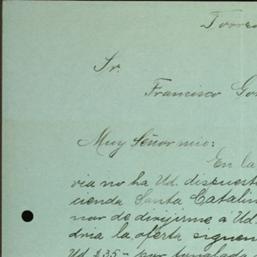 Torre
Sr.
Francisco Go
Muy Señor mio:
En la
via no ha Ud. dispuest
cienda Santa Catalin
nor de dirijirme á Ud.
dria la oferta siguen
Ud 235.- por tonelada